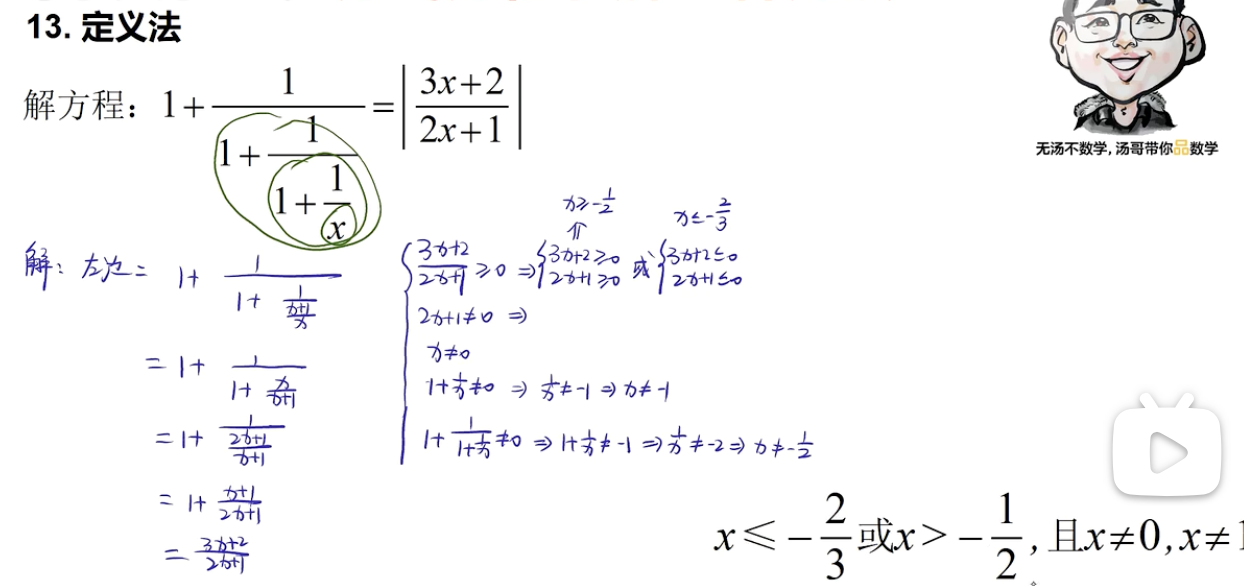 13. 定义法
解方程：1+1/(1+1/(1+1/x))=|(3x+2)/(2x+1)|
无汤不数学，汤哥带你品数学
解：左边= 1+ 1/(1+ 1/((x+1)/x))
= 1+ 1/(1+ x/(x+1))
= 1+ 1/((2x+1)/(x+1))
= 1+ (x+1)/(2x+1)
= (3x+2)/(2x+1)
x≥-1/2
⇑
x≤-2/3
{(3x+2)/(2x+1)≥0 ⇒ {3x+2≥0 2x+1≥0 或 {3x+2≤0 2x+1≤0
2x+1≠0 ⇒
x≠0
1+1/x≠0 ⇒ 1/x≠-1 ⇒ x≠-1
1+1/(1+1/x)≠0 ⇒ 1+1/x≠-1 ⇒ 1/x≠-2 ⇒ x≠-1/2
x≤-2/3或x>-1/2，且x≠0,x≠